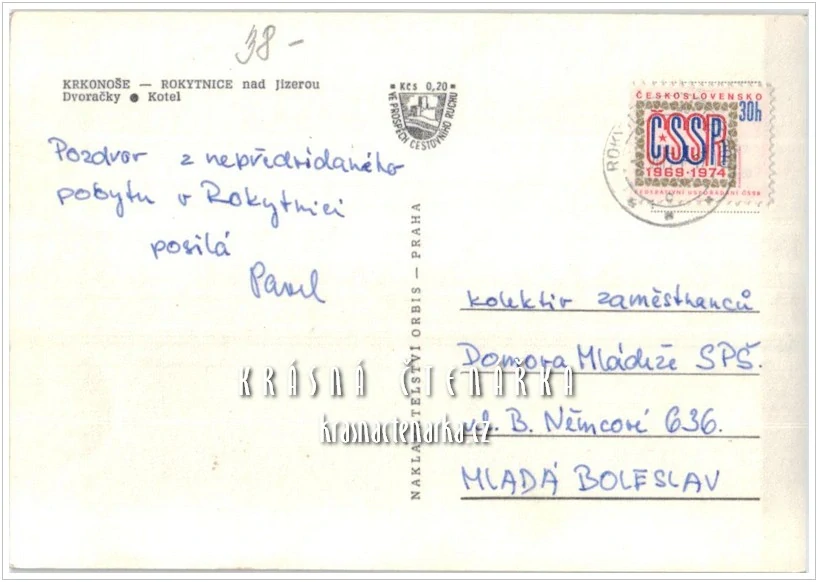 38-
KRKONOŠE — ROKYTNICE nad Jizerou
Dvoračky ● Kotel
Kčs 0,20
VE PROSPĚCH CESTOVNÍHO RUCHU
ČESKOSLOVENSKO
30h
ČSSR
1969-1974
FEDERATIVNÍ USPOŘÁDÁNÍ ČSSR
Pozdrav z nepředvídaného
pobytu v Rokytnici
posílá
Pavel
NAKLADATELSTVÍ ORBIS — PRAHA
kolektiv zaměstnanců
Domova Mládeže SPŠ.
ul. B. Němcové 636.
MLADÁ BOLESLAV
KRÁSNÁ ČTENÁRKA
krasnactenarka.cz